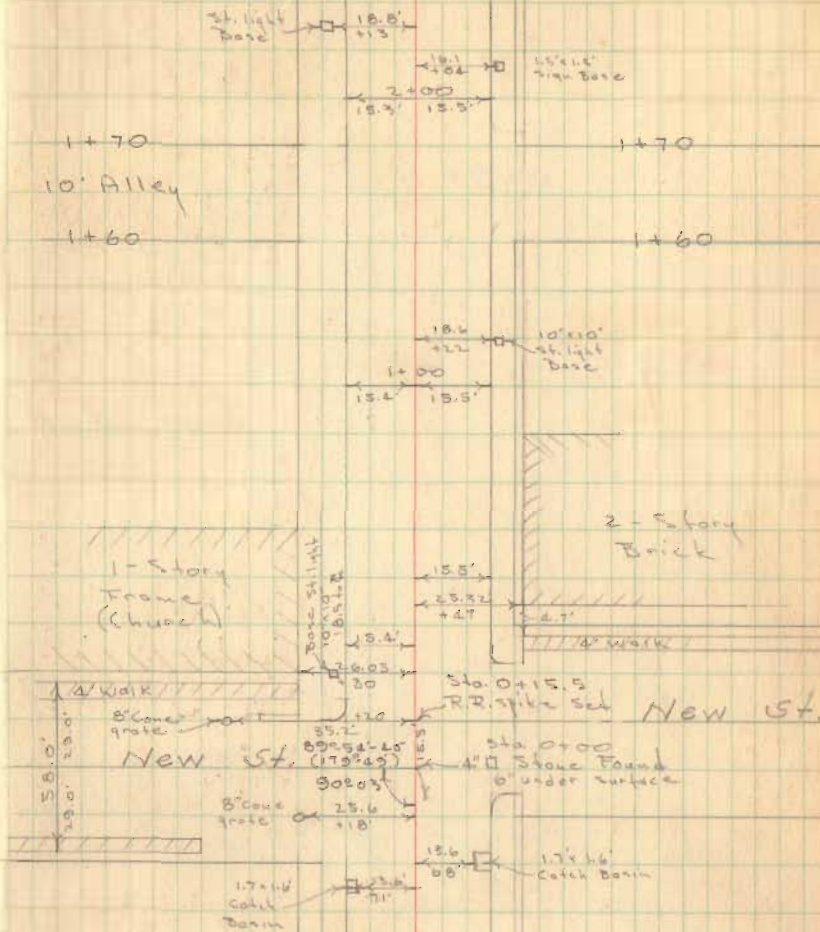 St. light
Base
18.8'
+13
16.1
+04
1.5'x1.5'
Sign Base
2+00
15.3' 15.5'
1+70
1+70
10' Alley
1+60
1+60
18.6
+22
10"x10"
St. light
Base
1+00
15.4' 15.5'
2-Story
Brick
1-Story
Frame
(Church)
Base St. light
10"x10"
15.5'
25.32
+47
4.7'
4' Walk
15.4'
26.03
+30
4' Walk
Sta. 0+15.5
R.R. Spike Set
8" Cone
grate
+20
35.2'
New St.
89°54'-45"
(179°49')
New St.
Sta 0+00
4" □ Stone Found
6" under surface
90°03'
58.0'
29.0'
29.0'
8" Cone
grate
25.6
+18'
13.6
08
1.7'x1.6'
Catch Basin
1.7'x1.6'
Catch
Basin